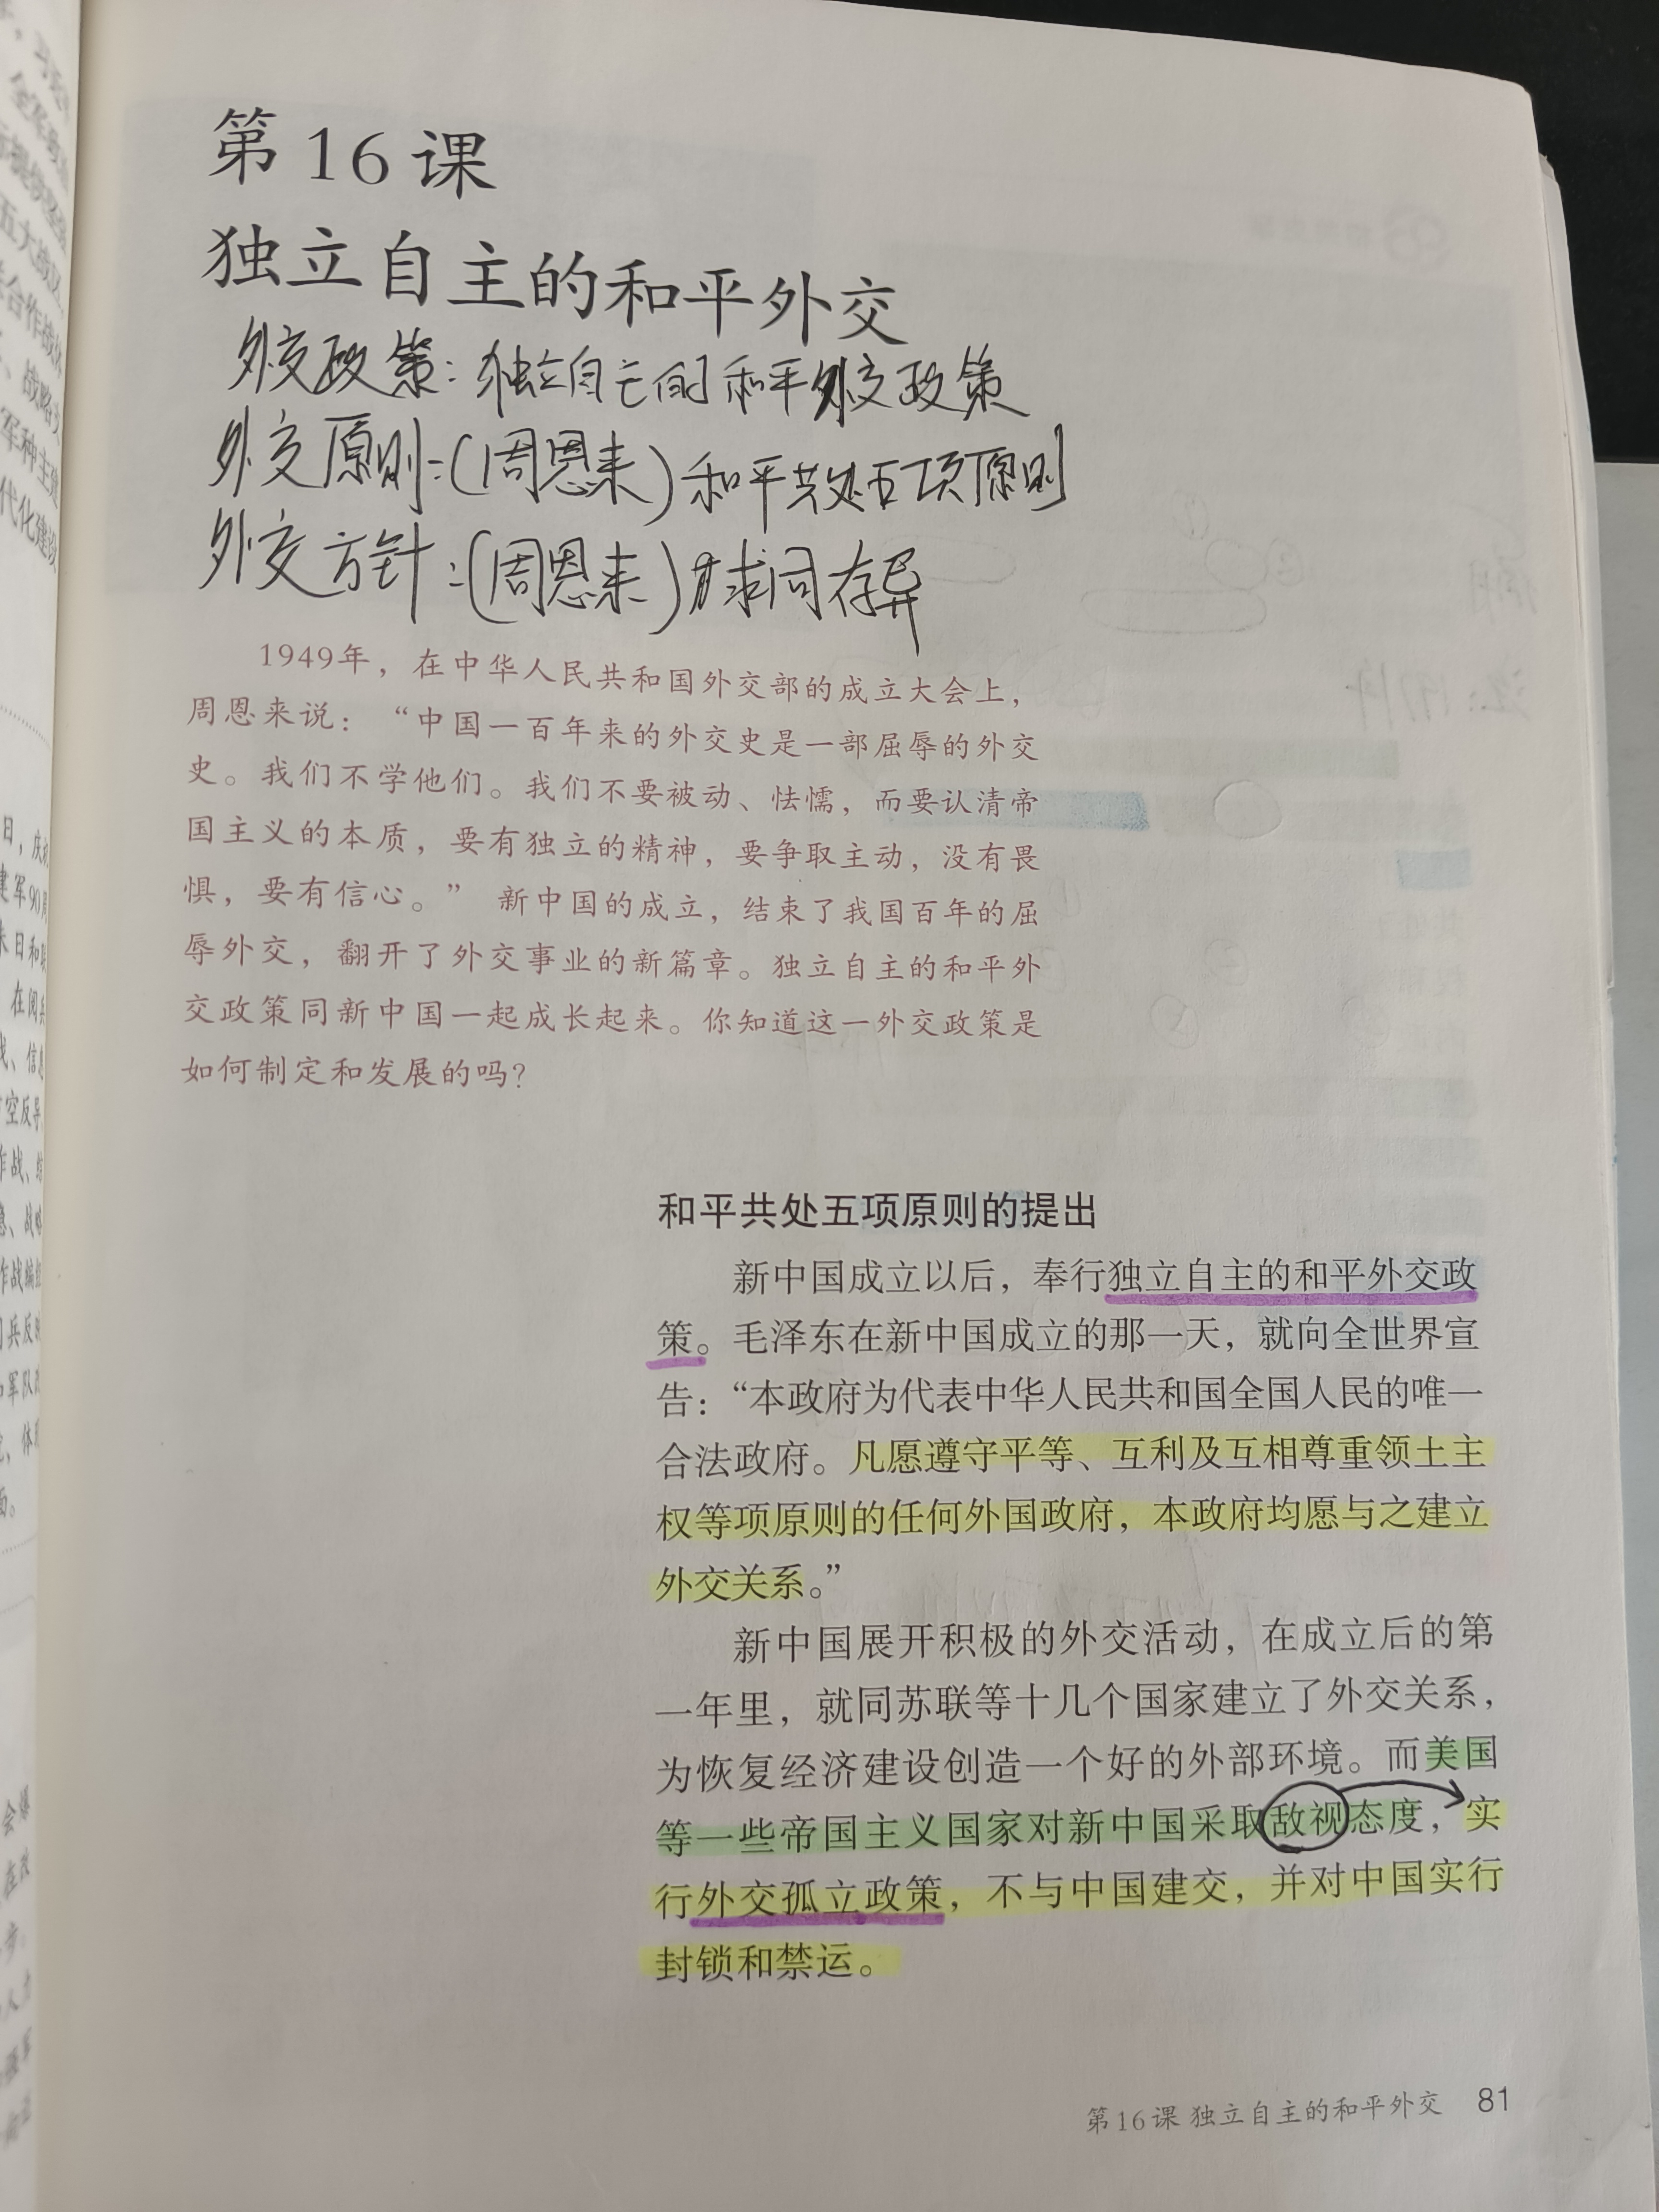 第16课
独立自主的和平外交
外交政策：独立自主的和平外交政策
外交原则：(周恩来)和平共处五项原则
外交方针：(周恩来)求同存异
1949年，在中华人民共和国外交部的成立大会上，
周恩来说：“中国一百年来的外交史是一部屈辱的外交
史。我们不学他们。我们不要被动、怯懦，而要认清帝
国主义的本质，要有独立的精神，要争取主动，没有畏
惧，要有信心。”新中国的成立，结束了我国百年的屈
辱外交，翻开了外交事业的新篇章。独立自主的和平外
交政策同新中国一起成长起来。你知道这一外交政策是
如何制定和发展的吗？
和平共处五项原则的提出
新中国成立以后，奉行独立自主的和平外交政
策。毛泽东在新中国成立的那一天，就向全世界宣
告：“本政府为代表中华人民共和国全国人民的唯一
合法政府。凡愿遵守平等、互利及互相尊重领土主
权等项原则的任何外国政府，本政府均愿与之建立
外交关系。”
新中国展开积极的外交活动，在成立后的第
一年里，就同苏联等十几个国家建立了外交关系，
为恢复经济建设创造一个好的外部环境。而美国
等一些帝国主义国家对新中国采取敌视态度，实
行外交孤立政策，不与中国建交，并对中国实行
封锁和禁运。
第16课 独立自主的和平外交 81